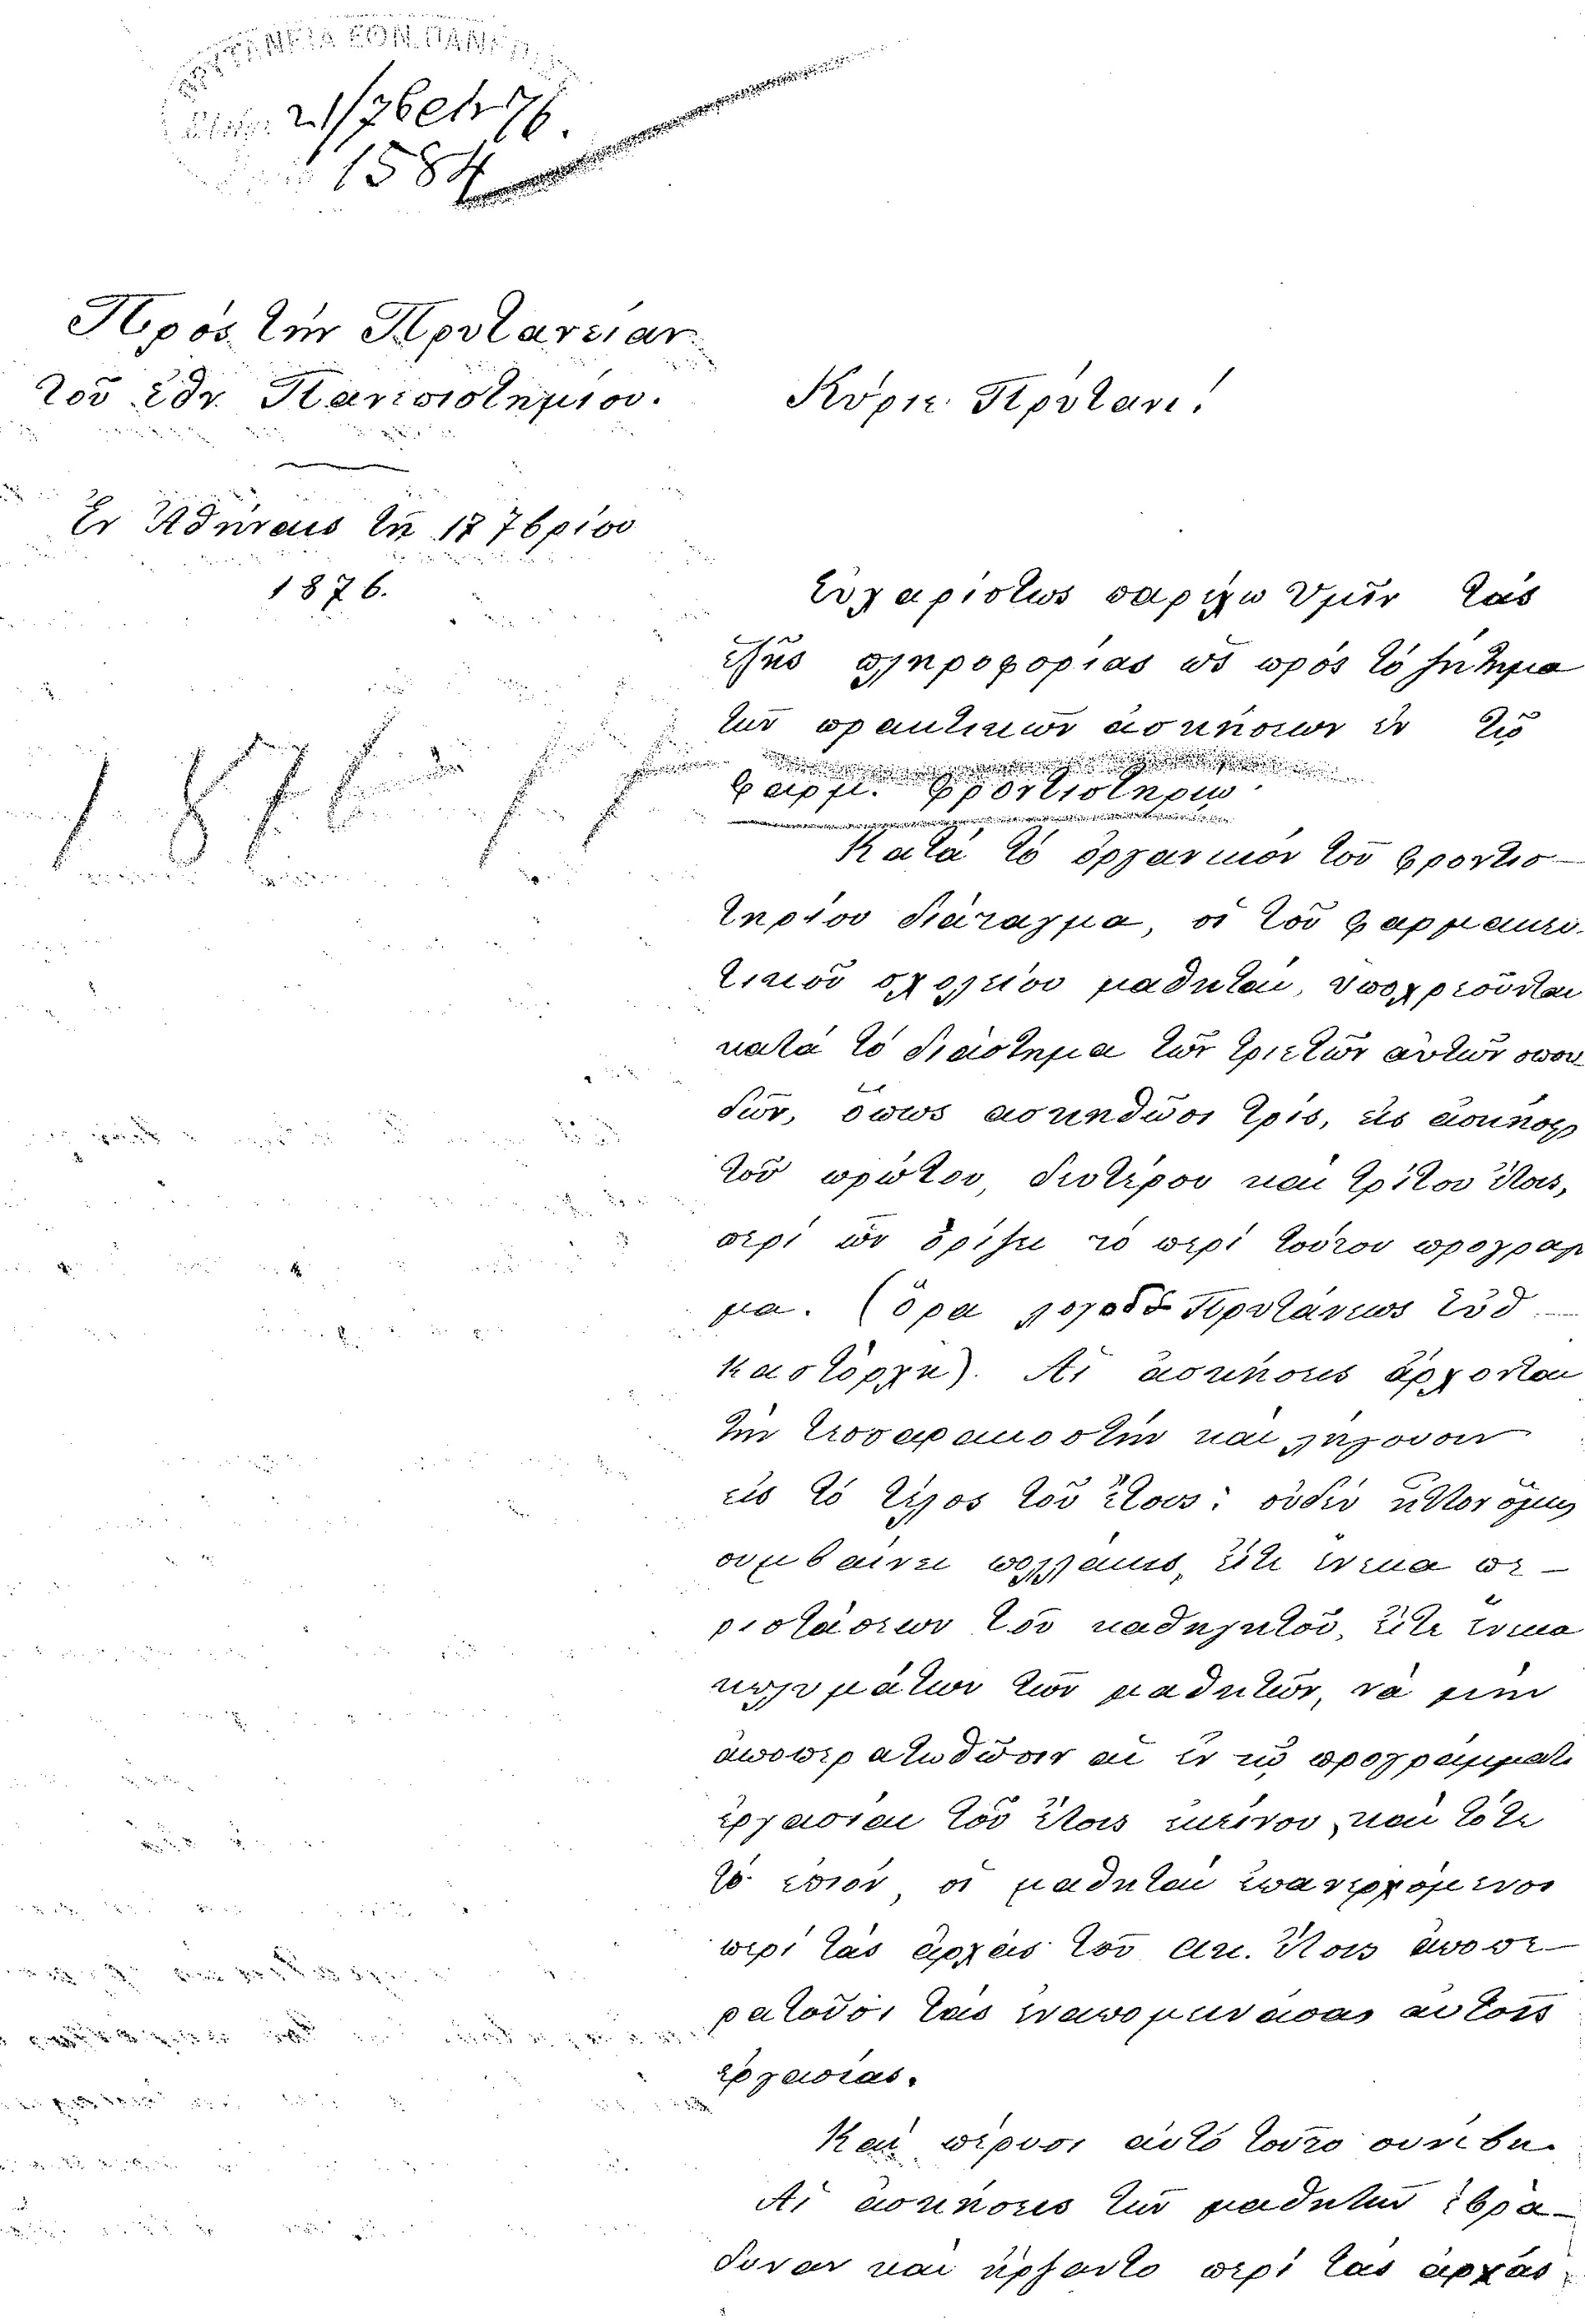 ΠΡΥΤΑΝΕΙΑ ΕΘΝ. ΠΑΝΕΠ.
21/7βρ 76.
1584
Πρὸς τὴν Πρυτανείαν
τοῦ ἐθν. Πανεπιστημίου.
Ἐν Ἀθήναις τῇ 17 7βρίου
1876.
Κύριε Πρύτανι!
Εὐχαρίστως παρέχω ὑμῖν τὰς
ἑξῆς πληροφορίας ὡς πρὸς τὸ ζήτημα
τῶν πρακτικῶν ἀσκήσεων ἐν τῷ
Φαρμ. Φροντιστηρίῳ.
Κατὰ τὸ ὀργανικὸν τοῦ φροντισ-
τηρίου διάταγμα, οἱ τοῦ φαρμακευ-
τικοῦ σχολείου μαθηταί, ὑποχρεοῦνται
κατὰ τὸ διάστημα τῶν τριετῶν αὐτῶν σπου
δῶν, ὅπως ασκηθῶσι τρίς, εἰς ἀσκήσεις
τοῦ πρώτου, δευτέρου καὶ τρίτου ἔτους,
περὶ ὧν ὁρίζει τὸ περὶ τούτου προγραμ
μα. (ὅρα λογοδ. Πρυτάνεως Εὐθ.
Καστόρχη). Αἱ ἀσκήσεις ἄρχονται
τὴν τεσσαρακοστὴν καὶ λήγουσιν
εἰς τὸ τέλος τοῦ ἔτους· οὐδὲν ἧττον ὅμως
συμβαίνει πολλάκις, εἴτε ἕνεκα πε-
ριστάσεων τοῦ καθηγητοῦ, εἴτε ἕνεκα
κωλυμάτων τῶν μαθητῶν, νὰ μὴν
ἀποπερατωθῶσιν αἱ ἐν τῷ προγράμματι
ἐργασίαι τοῦ ἔτους ἐκείνου, καὶ τότε
τὸ ἐπιὸν, οἱ μαθηταὶ ἐπανερχόμενοι
περὶ τὰς ἀρχὰς τοῦ ακ. ἔτους ἀποπε-
ρατοῦσι τὰς ἐναπομεινάσας αὐτοῖς
ἐργασίας.
Καὶ πέρυσι αὐτὸ τοῦτο συνέβη.
Αἱ ἀσκήσεις τῶν μαθητῶν ἐβρά-
δυναν καὶ ἤρξαντο περὶ τὰς ἀρχὰς